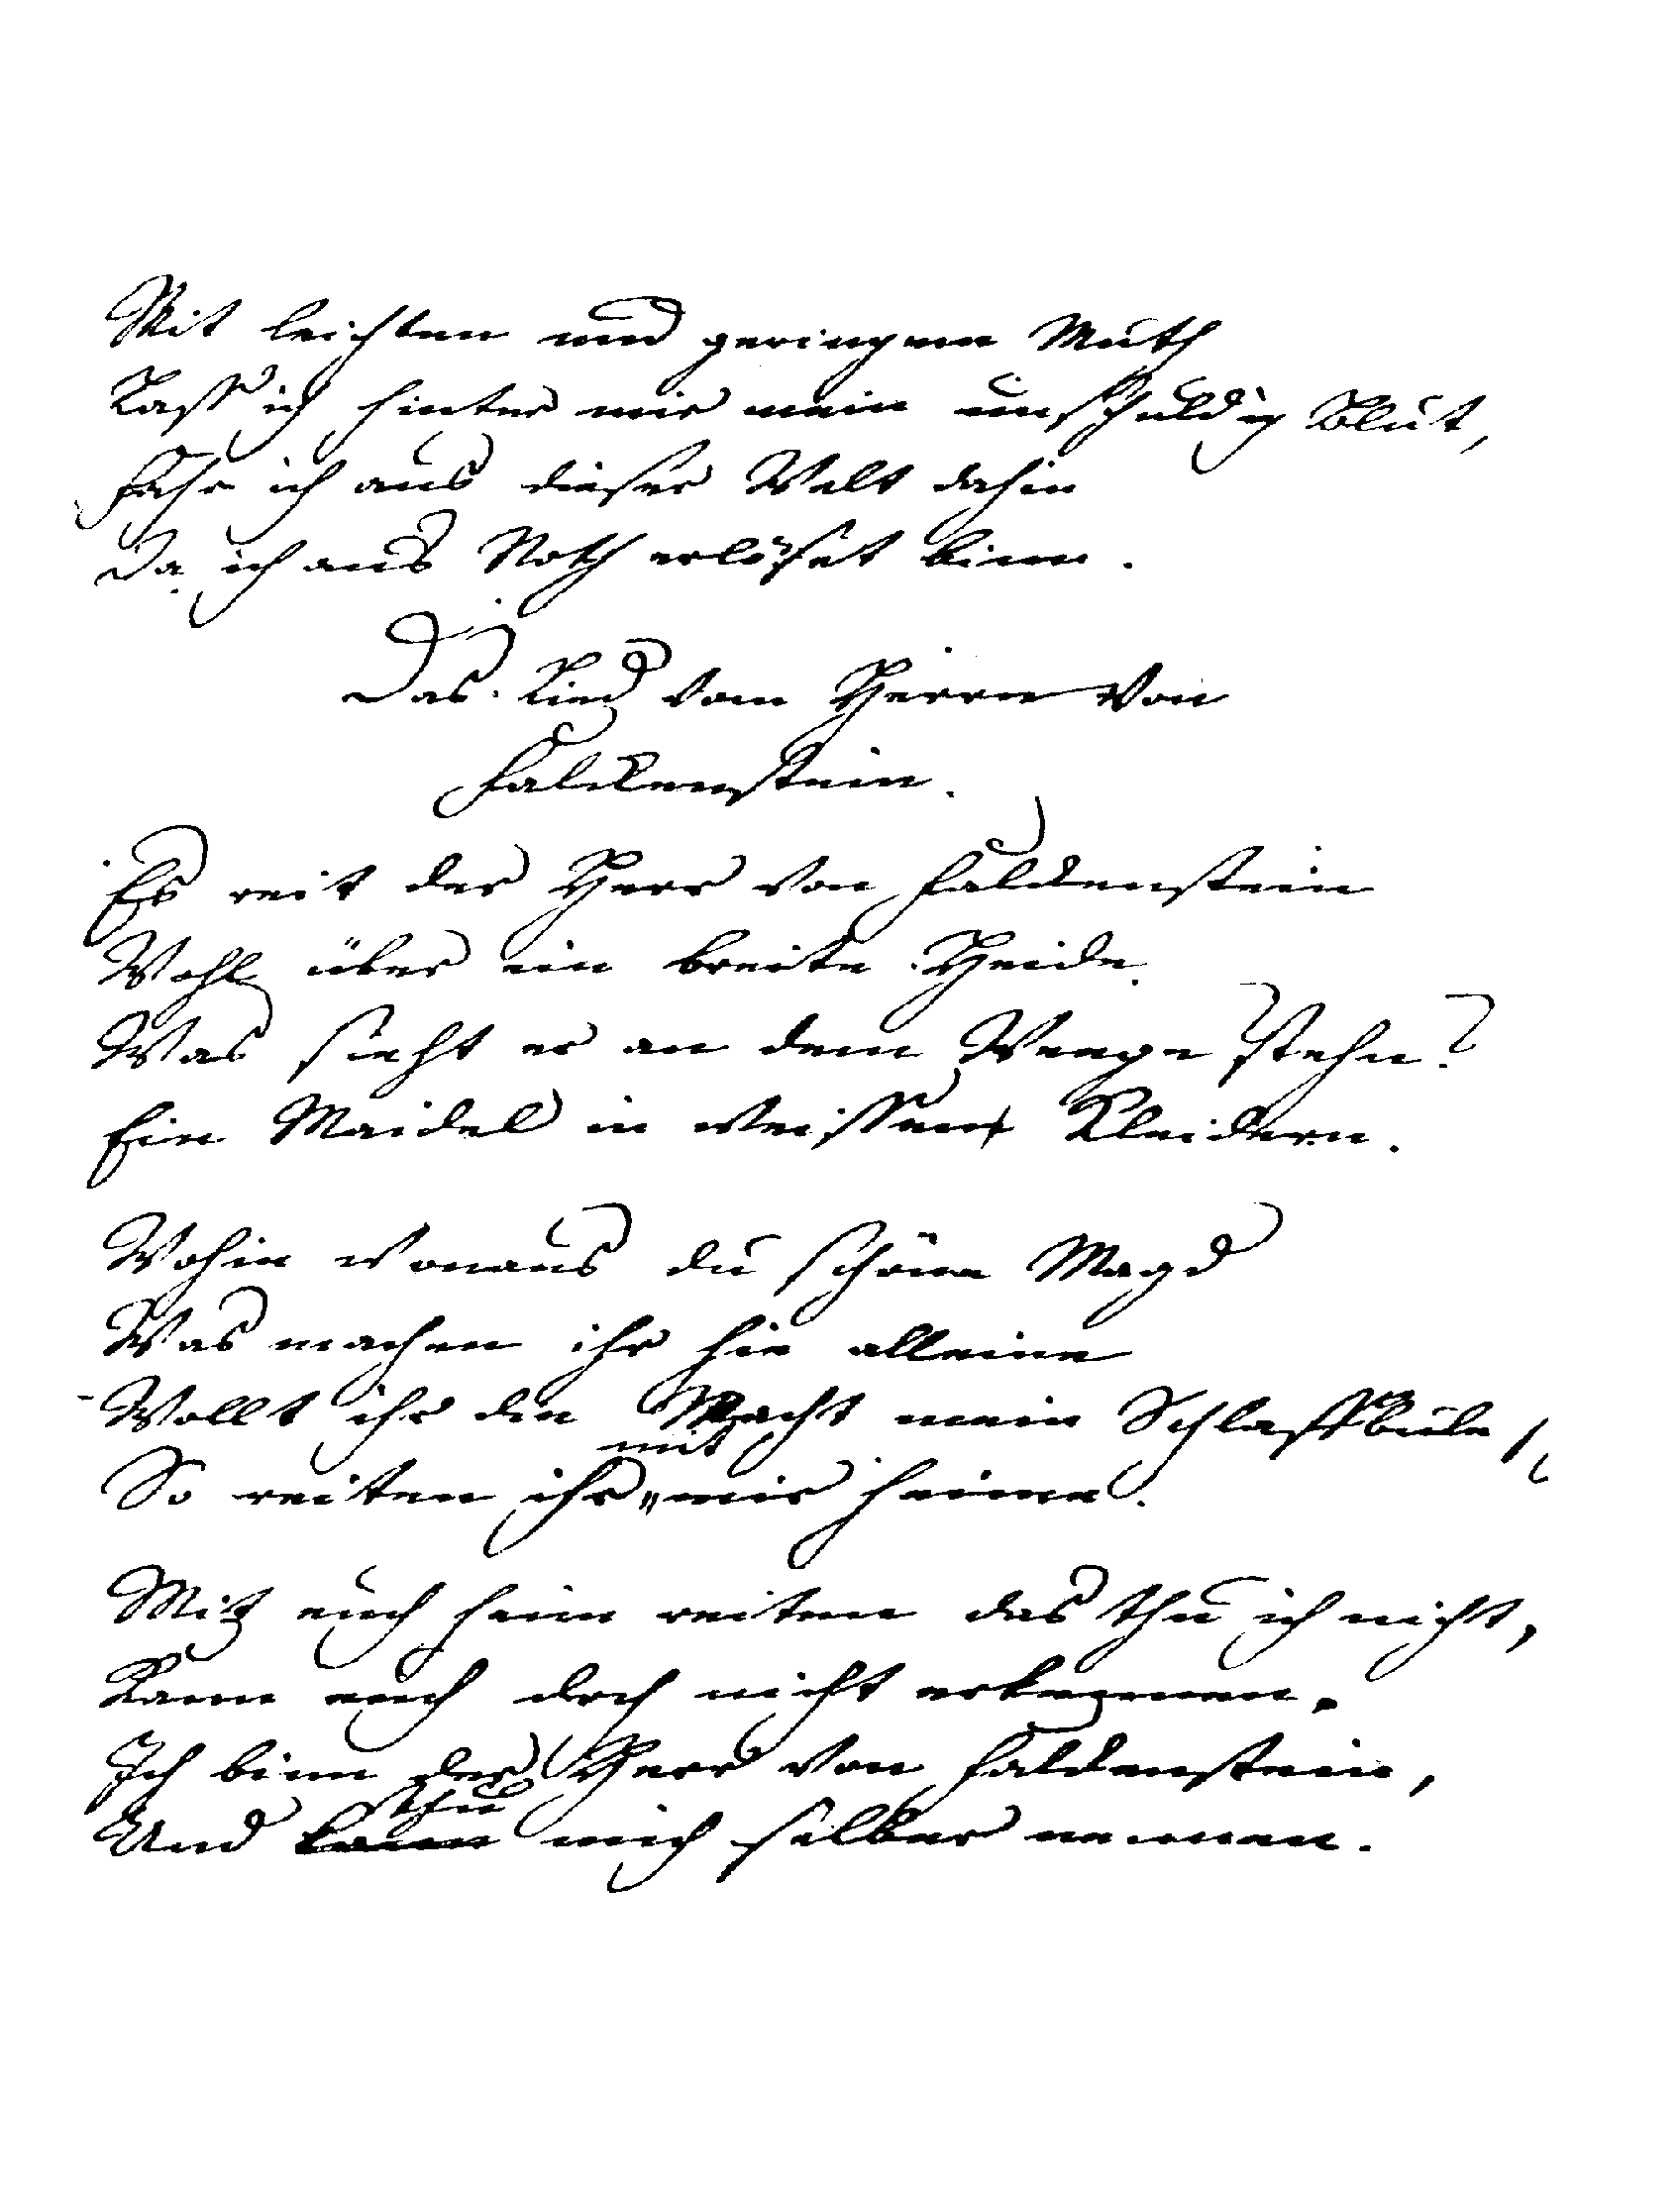 Mit leichten und geringen Muth
Lass ich hinter mir mein unschuldig Blut,
Fahr ich aus dieser Welt dahin
Da ich aus Noth erlöset binn.
Das Lied vom Herrn von
Falckenstein.
Es reit der Herr von Falckenstein
Wohl über ein breite Heide.
Was sieht er an dem Weege stehn?
Ein Maidel in weissen Kleidern.
Wohin wonaus du schöne Magd
Was machen ihr hie alleine
Wollt ihr die Nacht mein Schlafbule
mit
So reiten ihr mir heime.
Mit euch heim reiten das thu ich nicht,
Kann euch doch nicht erkennen.
Ich binn der Herr von Falckenstein,
thu
Und kann mich selber nennen.